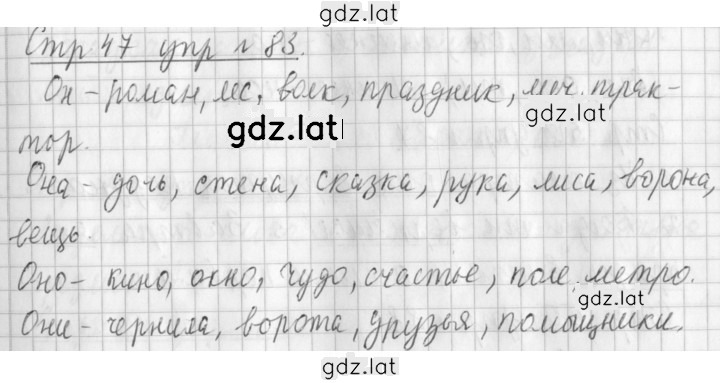 gdz.lat
Стр 47 упр № 83.
Он - роман, лес, волк, праздник, меч. трак-
gdz.lat
тор.
Она - дочь, стена, сказка, рука, лиса, ворона,
вещь.
Оно - кино, окно, чудо, счастье, поле, метро.
gdz.lat
Они - чернила, ворота, друзья, помощники.
gdz.lat